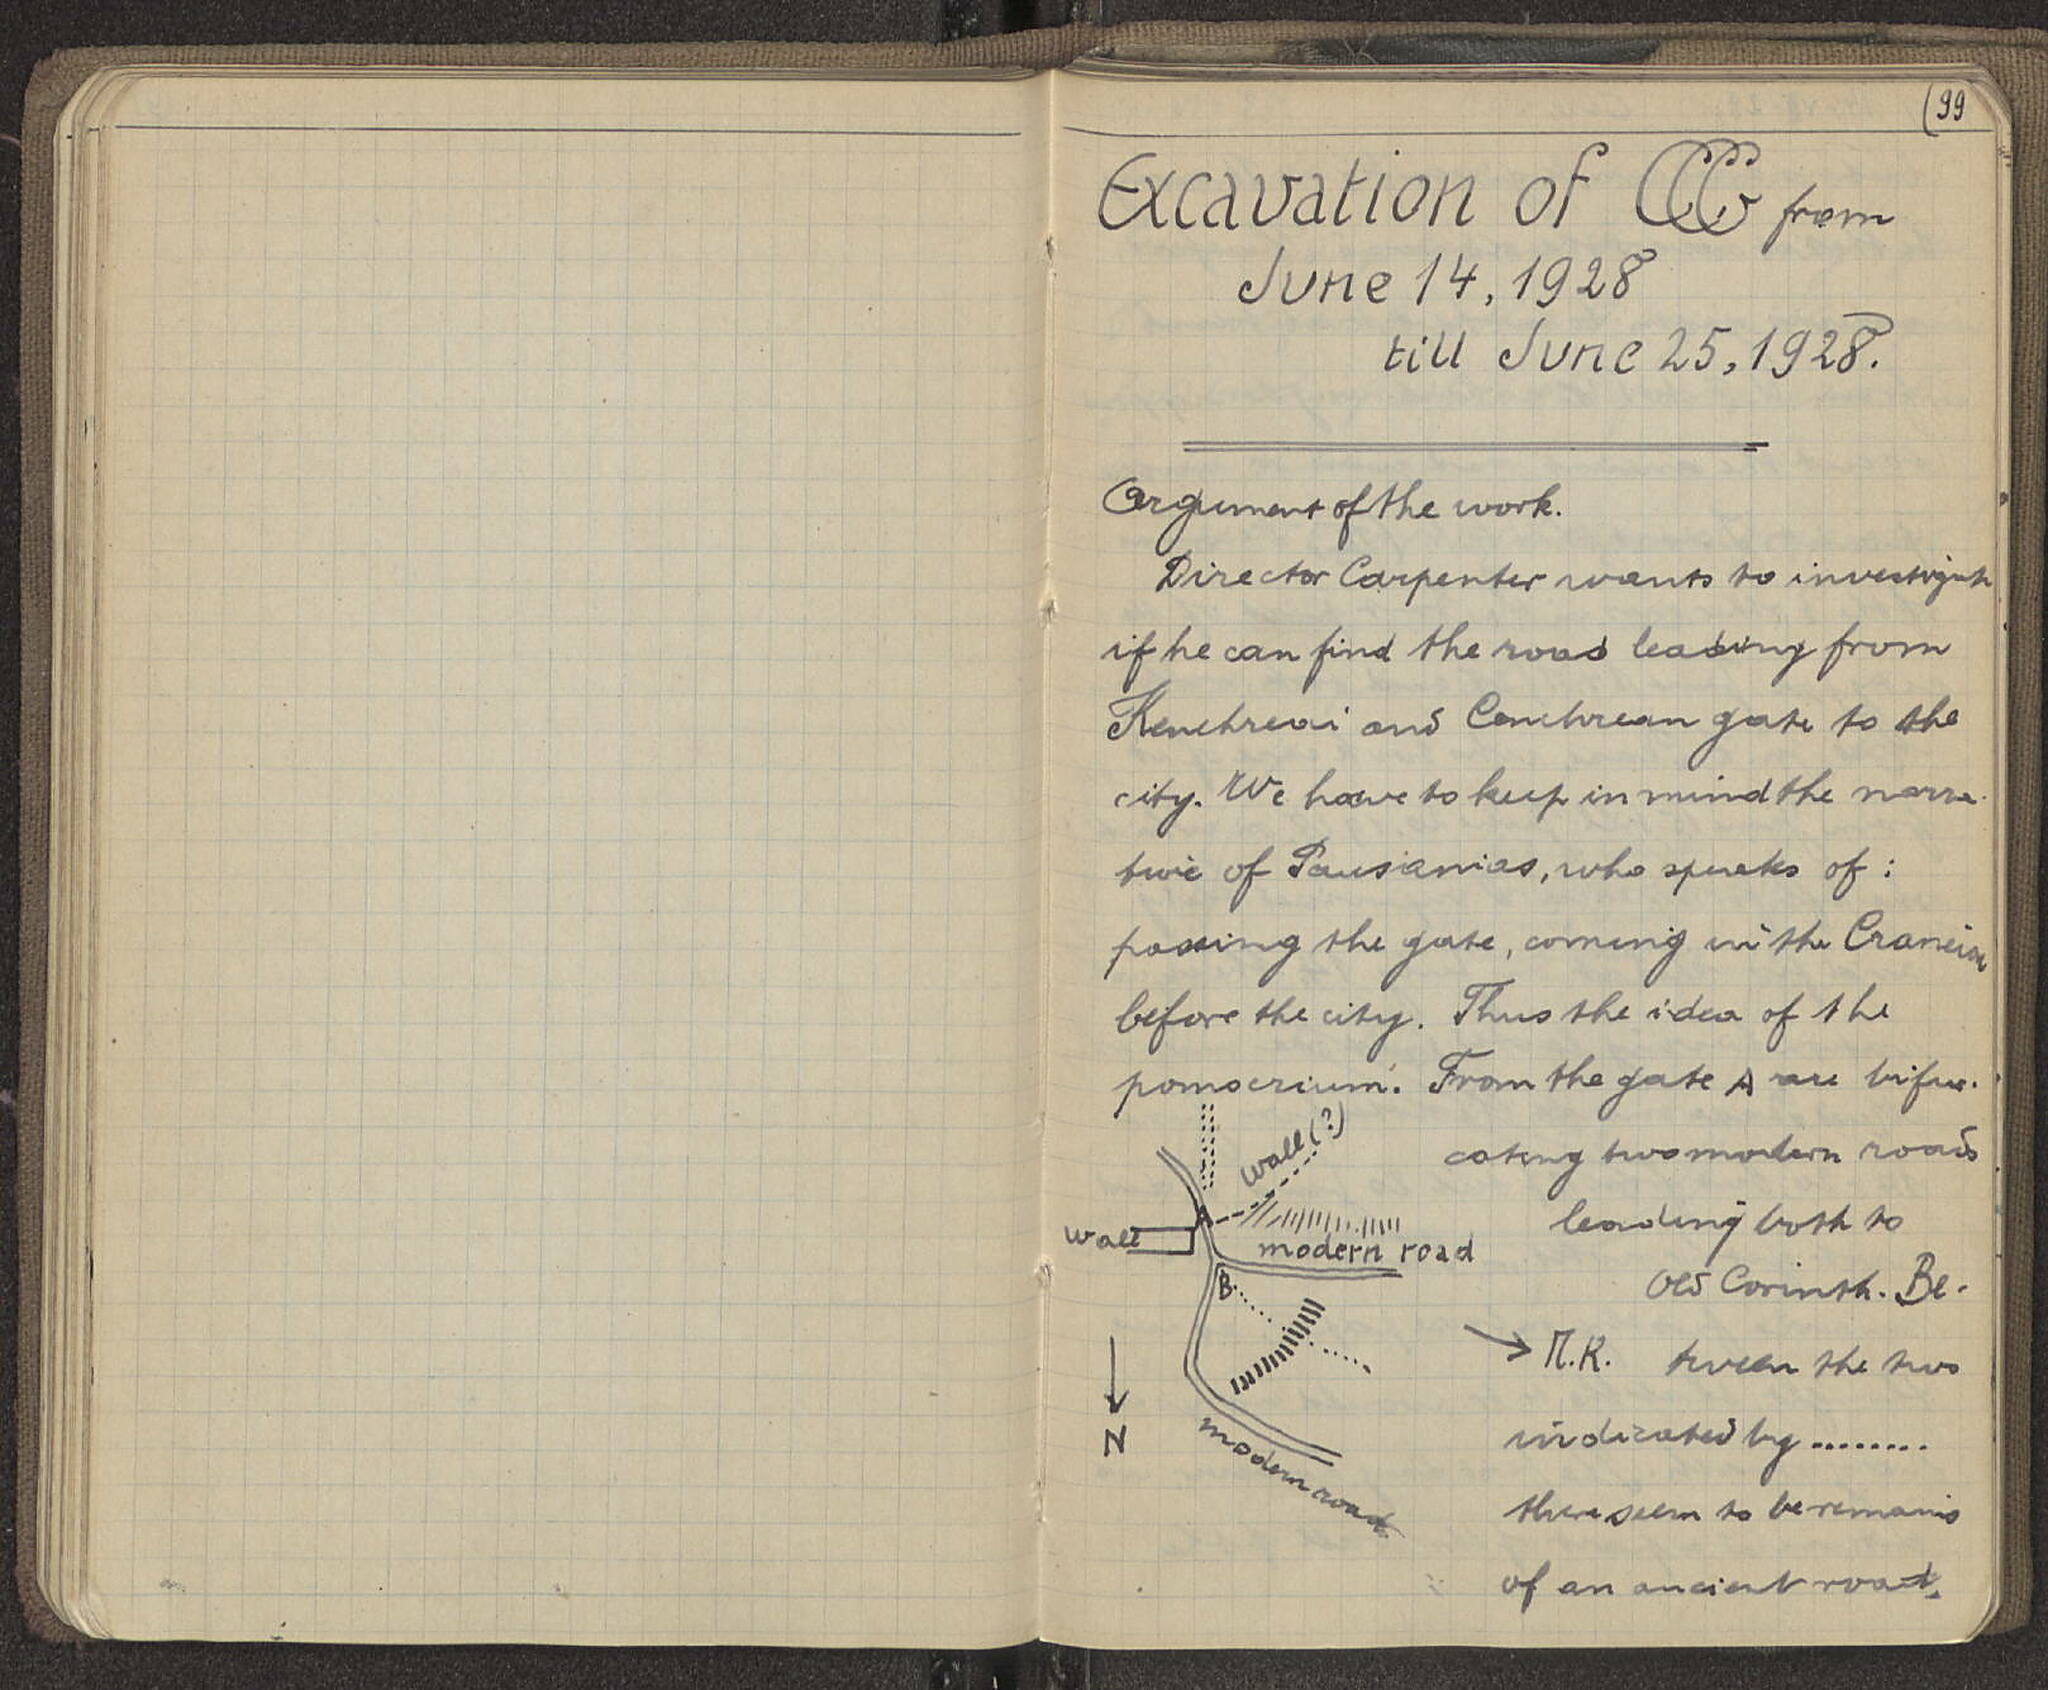 99
Excavation of CCC from
June 14, 1928
till June 25, 1928.
Argument of the work.
Director Carpenter wants to investigate
if he can find the road leading from
Kenchreai and Cenchrean gate to the
city. We have to keep in mind the narra-
tive of Pausanias, who speaks of :
passing the gate, coming in the Craneion
before the city. Thus the idea of the
pomoerium. From the gate A are bifur-
cating two modern roads
leading both to
Old Corinth. Be-
tween the two
indicated by ........
there seem to be remains
of an ancient road.
wall (?)
A
wall
modern road
B
→ Π.K.
N
modern road